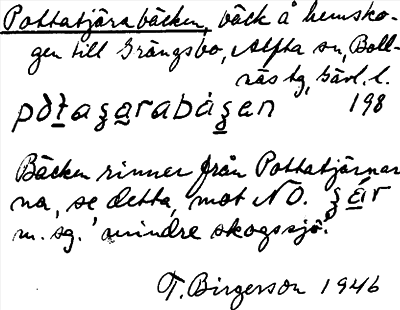 Pottatjärabäcken, bäck å hemsko-
gen till Grängsbo, Alfta sn, Boll-
näs tg, Gävl. l.
pòt̠aʒa̠rabáʒ̠en 198
Bäcken rinner från Pottatjärnar
na, se detta, mot NO. ʒá̠r
m. sg. 'mindre skogssjö.'
T. Birgerson 1946